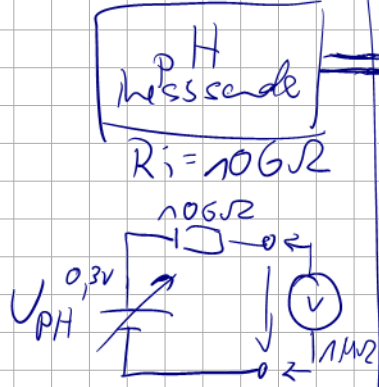 pH
Messsonde
Ri=10GΩ
10GΩ
0,3V
UPH
V
1MΩ